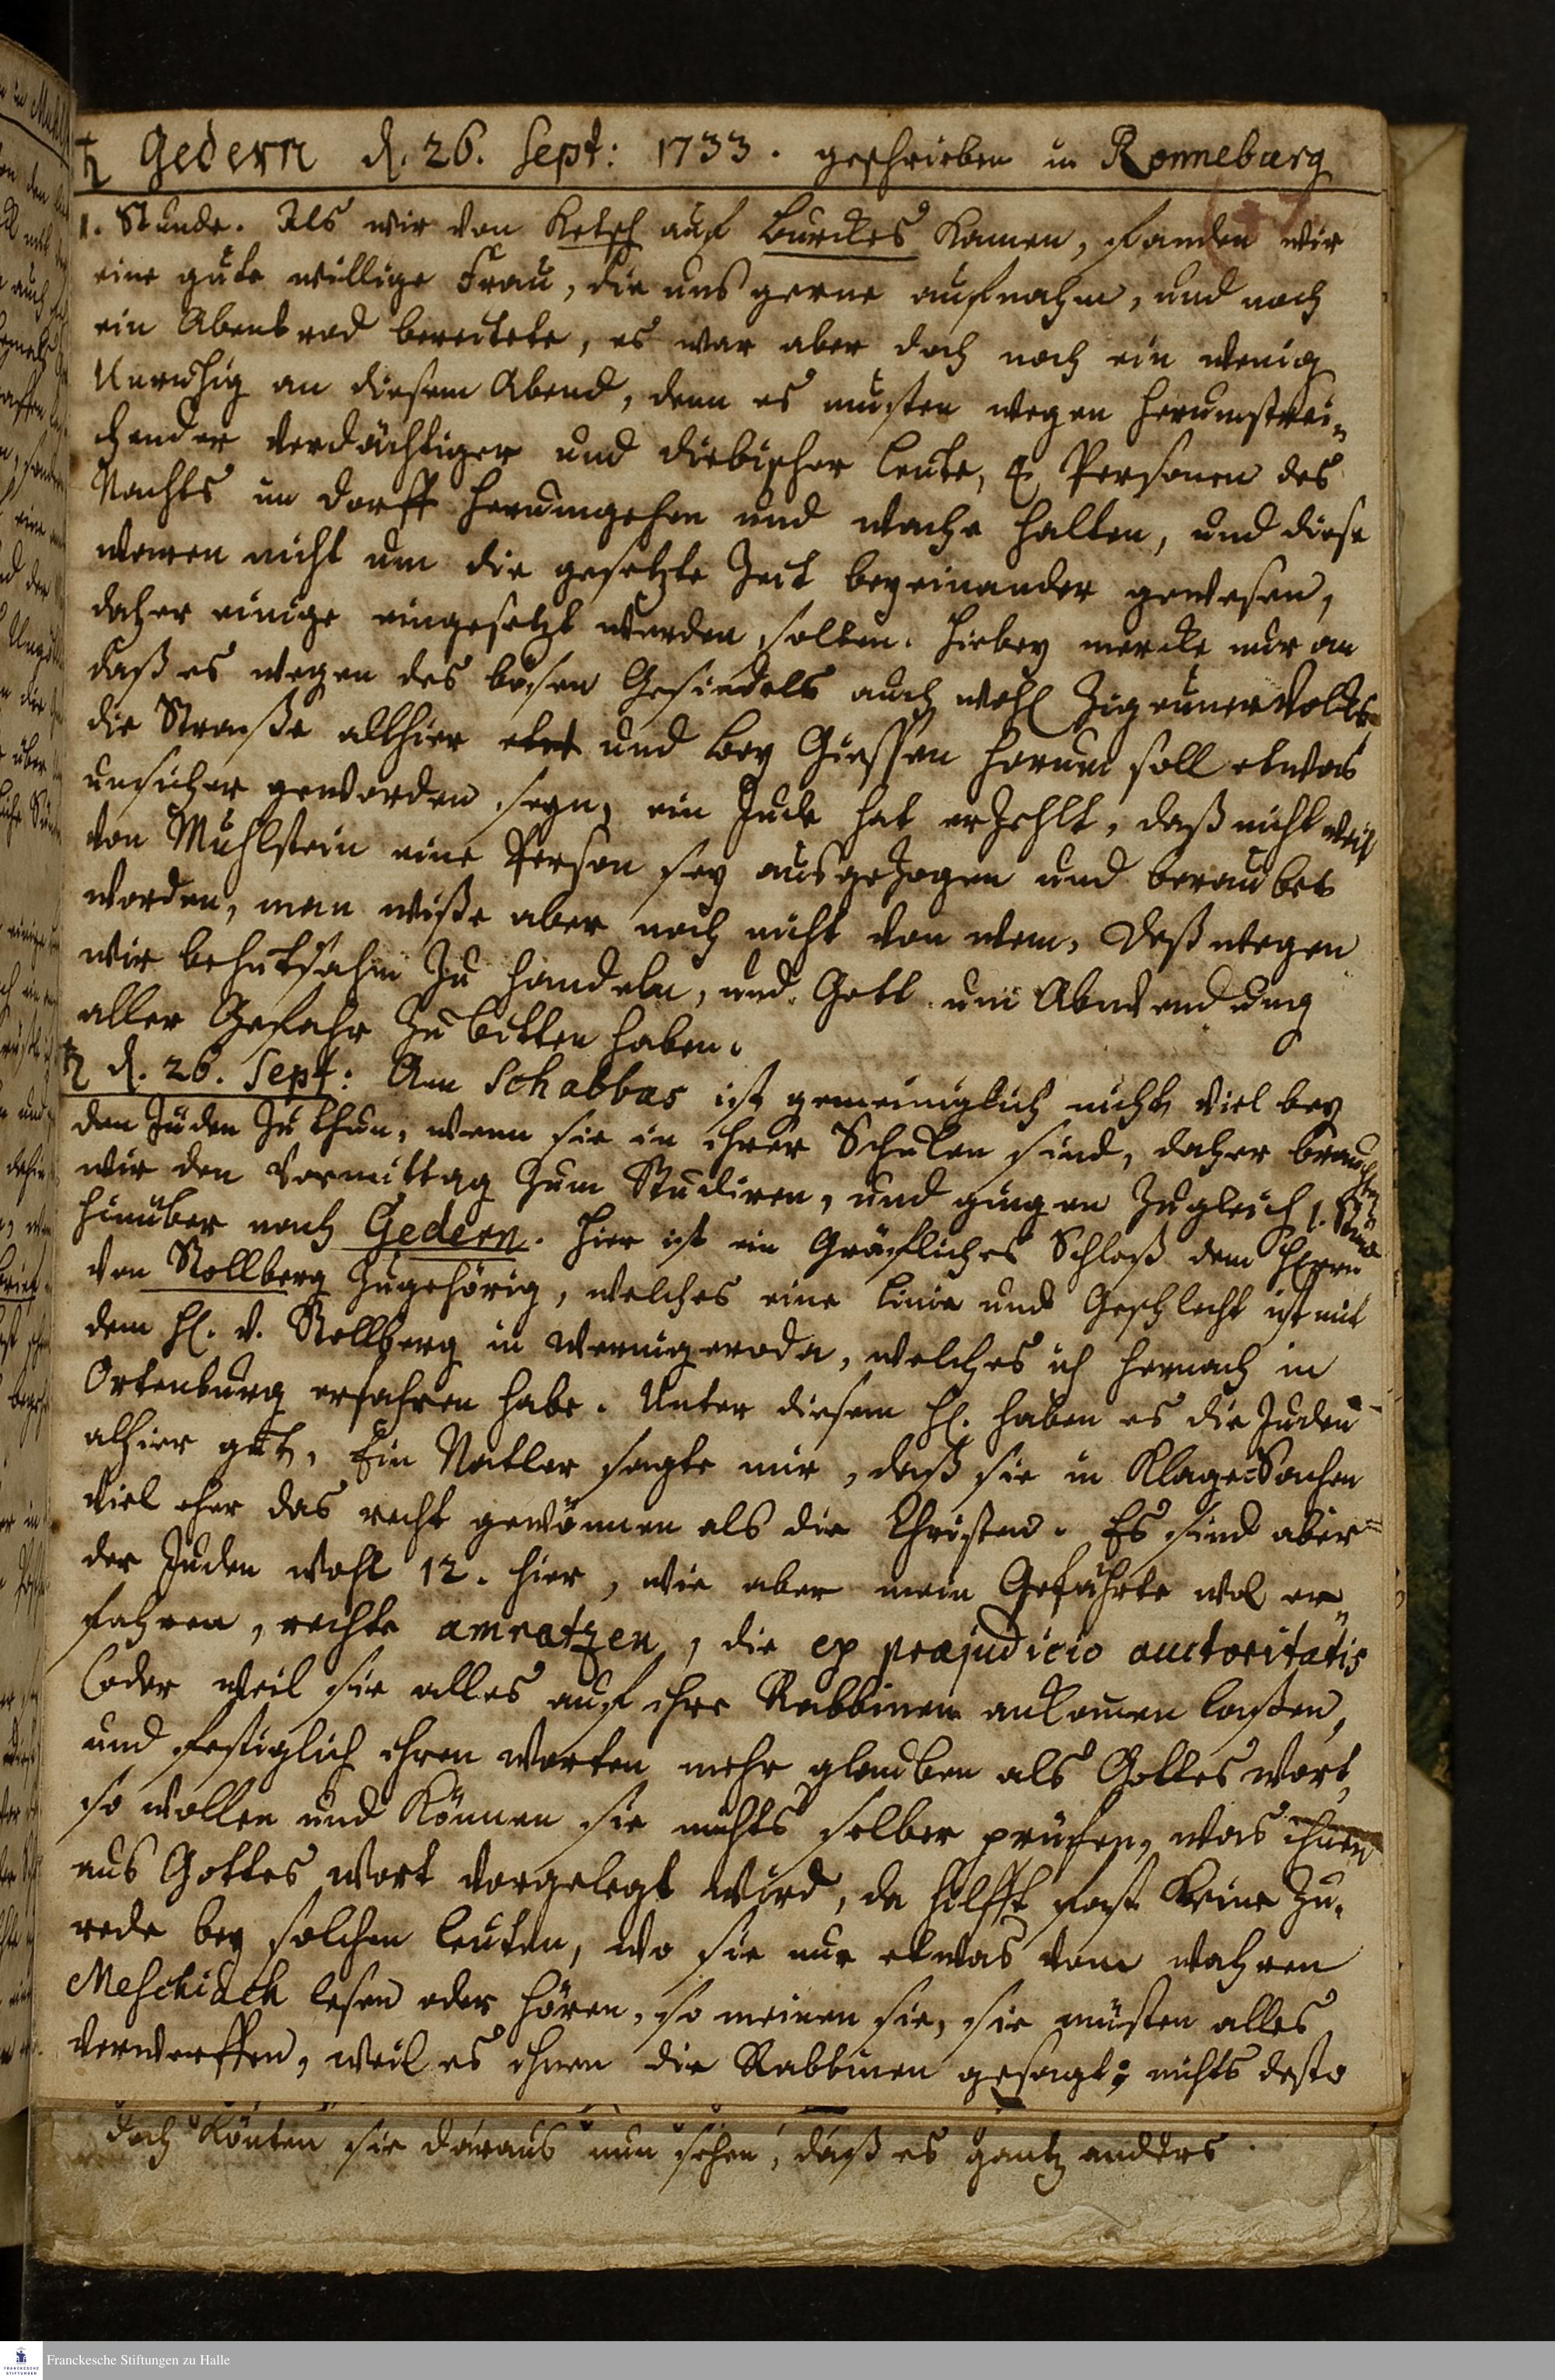 ♄ Gedern d. 26. Sept: 1733. geschrieben in Ronneburg
1. Stunde. Als wir von Ketsch auf Burckes kamen, fanden wir
eine gute willige Frau, die uns gerne aufnahm, und noch
ein Abentbrod bereitete, es war aber doch noch ein wenig
Unruhig an diesem Abend, denn es musten wegen herumstrei-
chender verdächtiger und diebischer Leute, Personen des
Nachts im Dorff herumgehen und wache halten, und diese
waren nicht um die gesetzte Zeit beyeinander gewesen,
daher einige eingesetzt werden solten. Hiebey mercke nur an
daß es wegen des bösen Gesindels auch wohl Zigeuner Volks
die Straße allhier und bey Giessen herum soll etwas
unsicher geworden seyn, ein Jude hat erzehlt, daß nicht weit
von Mühlstein eine Person sey ausgezogen und beraubet
worden, man wiße aber noch nicht von wem, deßwegen
wir behutsahm zu handeln, und Gott um Abwendung
aller Gefahr zu bitten haben.
♄ d. 26. Sept: Am Schabbas ist gemeiniglich nicht viel bey
den Juden zu thun, wenn sie in ihrer Schulen sind, daher brauchten
wir den Vormittag zum Studiren, und gingen zugleich 1. Stund
hinüber nach Gedern. Hier ist ein Gräfliches Schloß dem Herrn
von Stollberg zugehörig, welches eine Linie und Geschlecht ist mit
dem H. v. Stollberg in Wernigeroda, welches ich hernach in
Ortenburg erfahren habe. Unter diesem H. haben es die Juden
alhier gut, Ein Natler sagte mir, daß sie in Klage-Sachen
viel eher das recht gewönnen als die Christen. Es sind aber
der Juden wohl 12. hier, wie aber mein Gefährte wol er-
fahren, rechte amratzen, die ex praejudicio auctoritatis
(oder weil sie alles auf ihre Rabbinen ankomen laßen,
und festiglich ihren Worten mehr glauben als Gottes wort,
so wollen und können sie nichts selber prüfen, was ihnen
aus Gottes Wort vorgelegt wird, da hilfft fast keine Zu-
rede bey solchen Leuten, wo sie nur etwas vom wahren
Meschiach lesen oder hören, so meinen sie, sie müsten alles
verwerffen, weil es ihnen die Rabbinen gesagt; nichts desto
doch könten sie daraus nun sehen, daß es gantz anders
Franckesche Stiftungen zu Halle